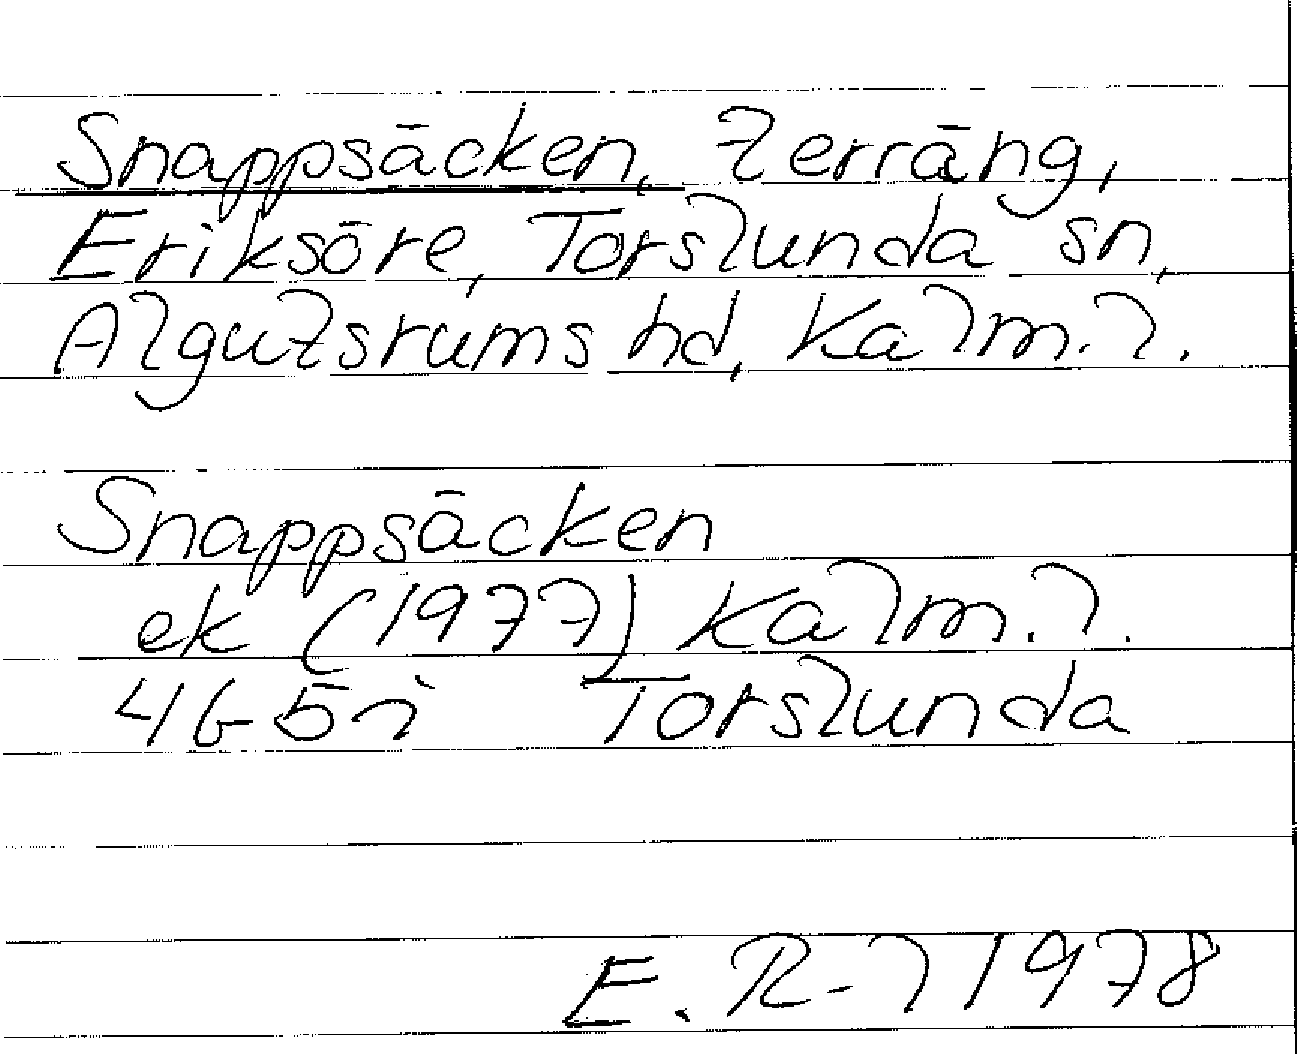 Snappsäcken, terräng,
Eriksöre, Torslunda sn,
Algutsrums hd, Kalm. l.
Snappsäcken
ek (1977) Kalm. l.
4G5i Torslunda
E. R-l 1978